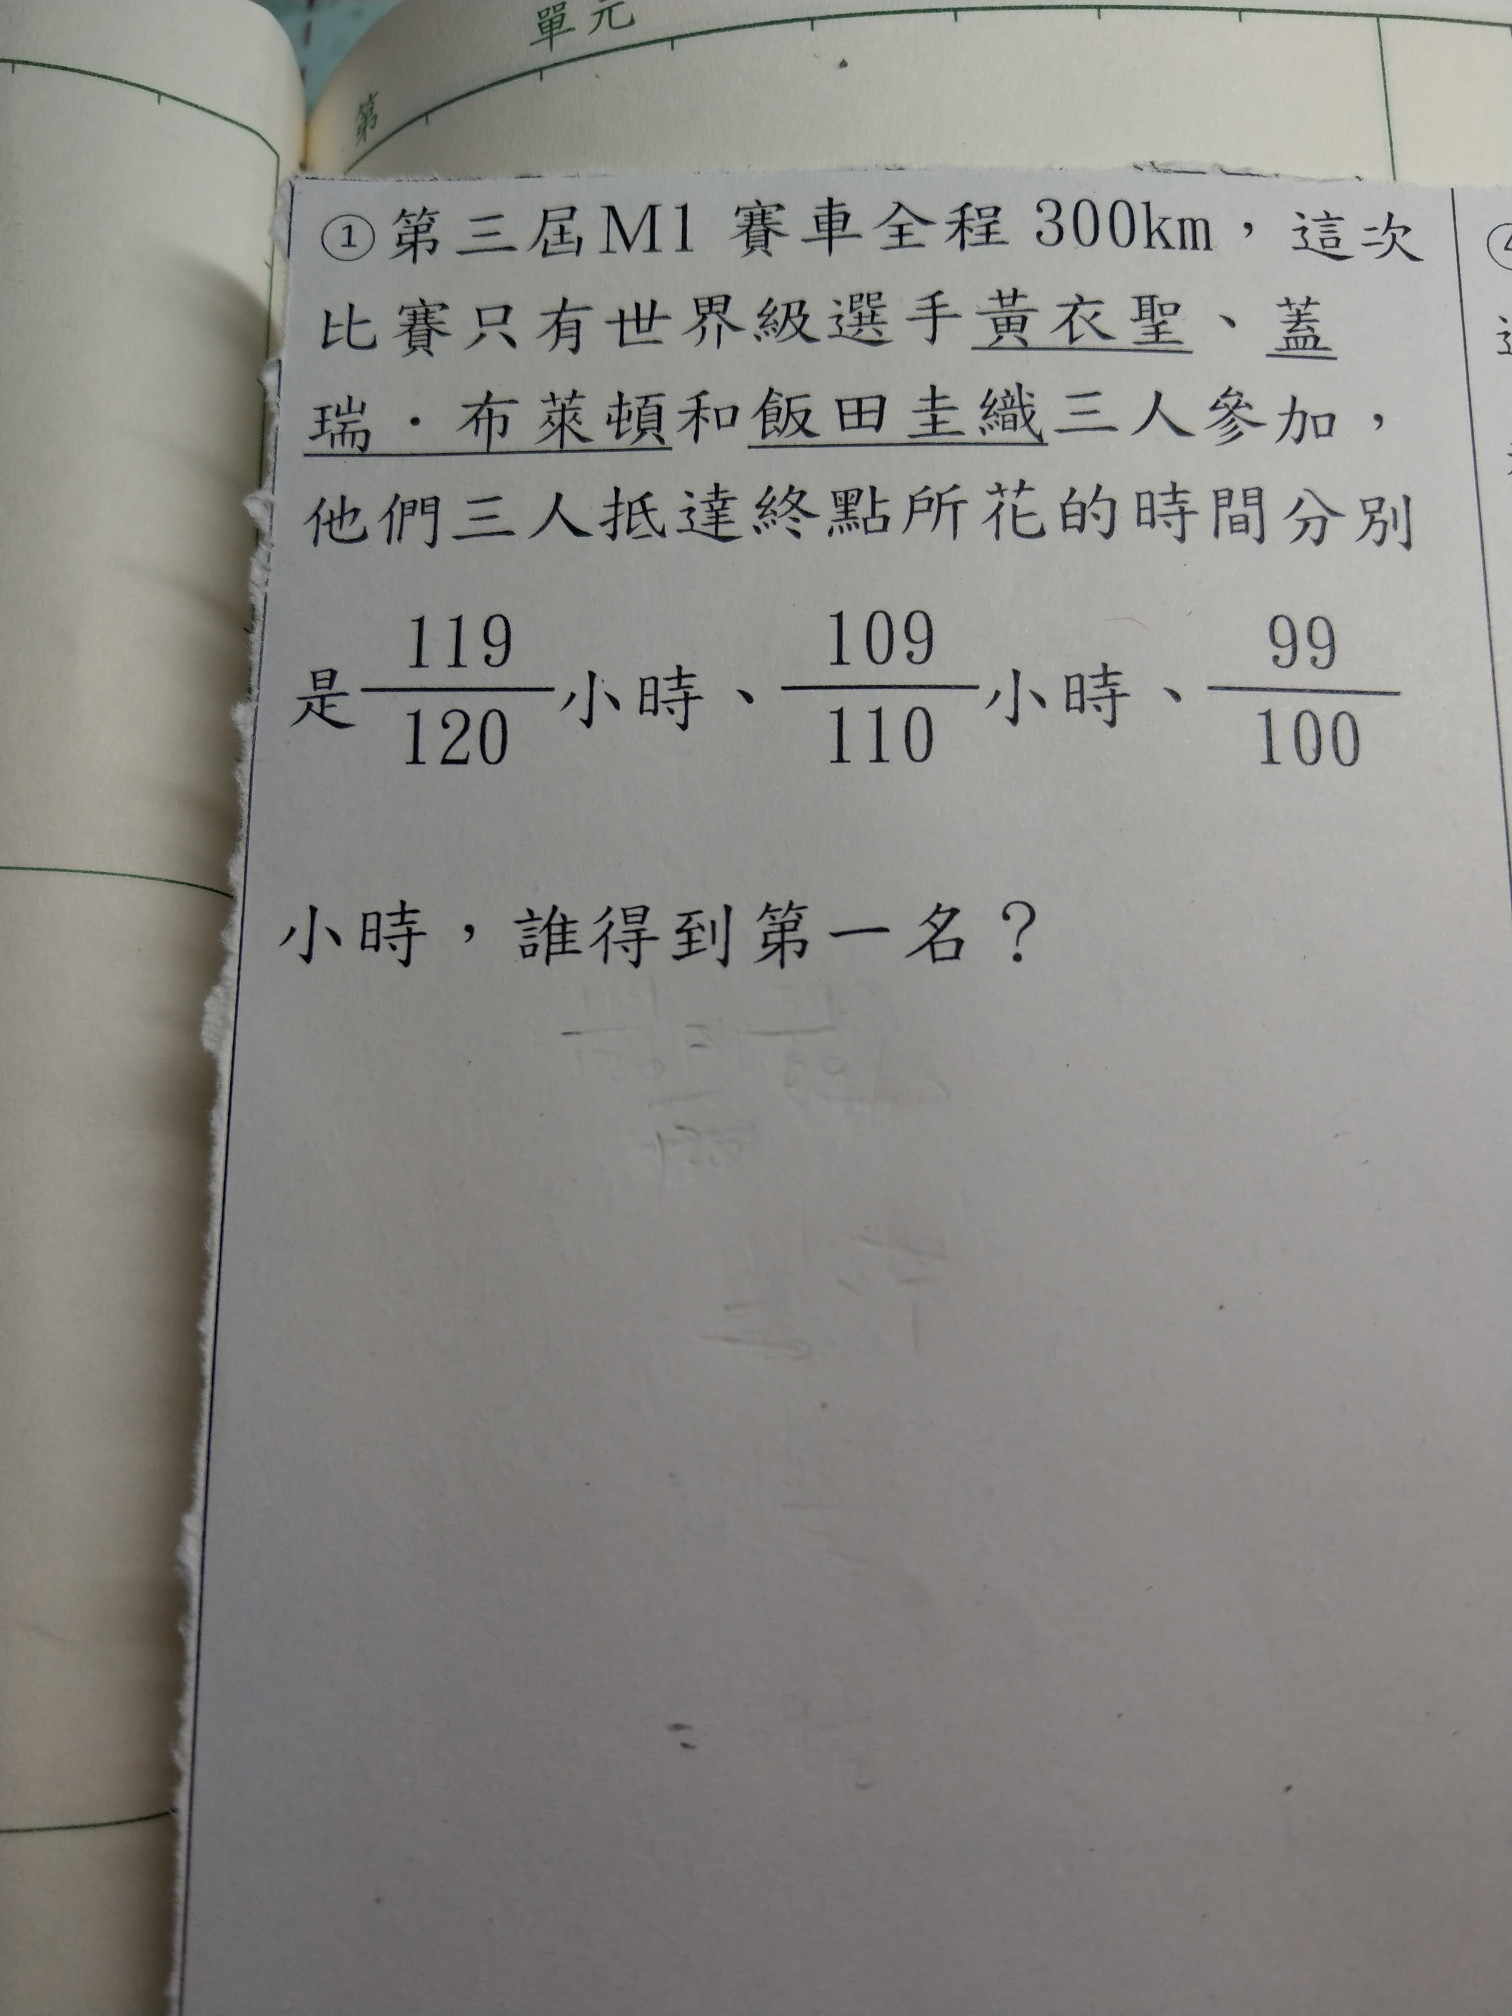 單元
第
①第三屆M1 賽車全程 300km，這次
比賽只有世界級選手黃衣聖、蓋
瑞．布萊頓和飯田圭織三人參加，
他們三人抵達終點所花的時間分別
是119/120小時、109/110小時、99/100
小時，誰得到第一名？